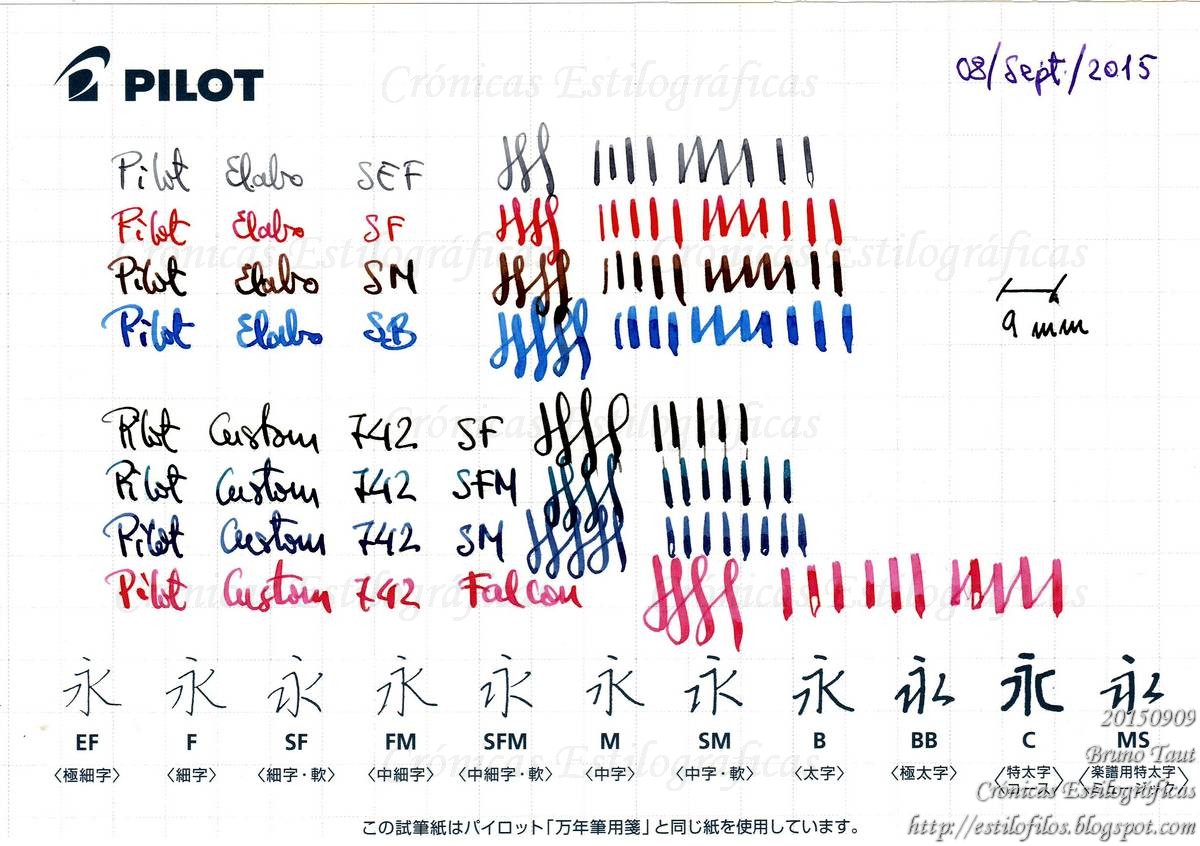 PILOT
Crónicas Estilográficas
08/Sept./2015
Pilot Elabo SEF
Pilot Elabo SF
Crónicas Estilográficas
Crónicas Estilográficas
Pilot Elabo SM
Pilot Elabo SB
9 mm
Crónicas Estilográficas
Pilot Custom 742 SF
Pilot Custom 742 SFM
Pilot Custom 742 SM
Crónicas Estilográficas
Crónicas Estilográficas
Pilot Custom 742 Falcon
永 永 永 永 永 永 永 永 永 永 永
EF F SF FM SFM M SM B BB C MS
〈極細字〉 〈細字〉 〈細字・軟〉 〈中細字〉 〈中細字・軟〉 〈中字〉 〈中字・軟〉 〈太字〉 〈極太字〉 〈特太字 コース〉 〈楽譜用特太字 ミュージック〉
Crónicas Estilográficas
20150909
Bruno Taut
Crónicas Estilográficas
http://estilofilos.blogspot.com
この試筆紙はパイロット「万年筆用箋」と同じ紙を使用しています。